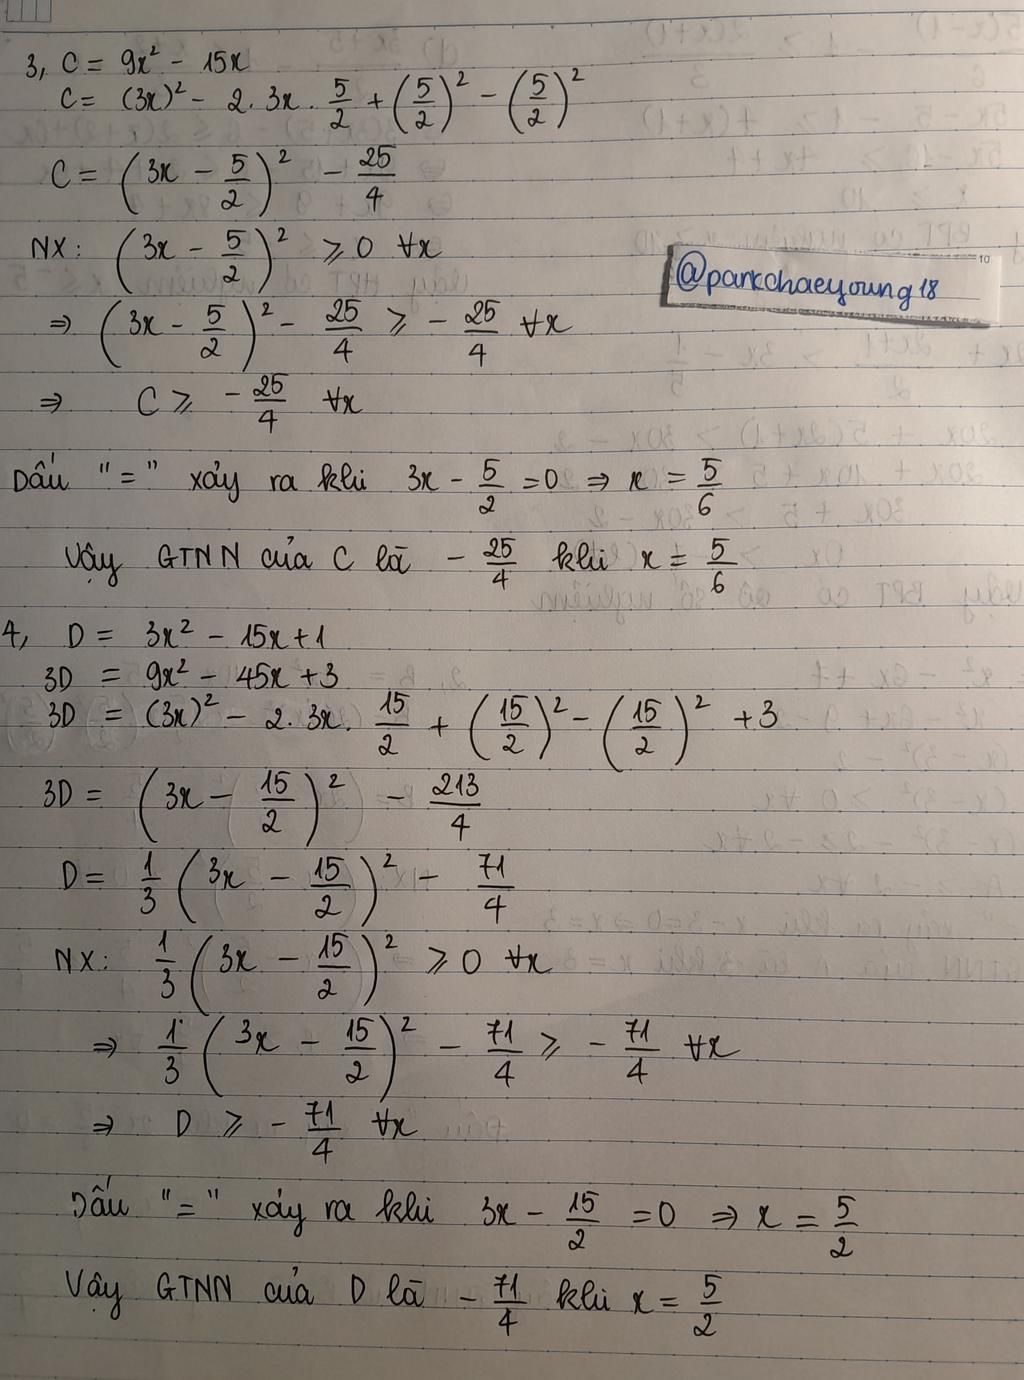 3, C = 9x² - 15x
C = (3x)² - 2. 3x . 5/2 + (5/2)² - (5/2)²
C = (3x - 5/2)² - 25/4
NX: (3x - 5/2)² ⩾ 0 ∀x
@parkchaeyoung18
⇒ (3x - 5/2)² - 25/4 ⩾ - 25/4 ∀x
⇒ C ⩾ - 25/4 ∀x
Dấu "=" xảy ra khi 3x - 5/2 = 0 ⇒ x = 5/6
Vậy GTNN của C là - 25/4 khi x = 5/6
4, D = 3x² - 15x + 1
3D = 9x² - 45x + 3
3D = (3x)² - 2. 3x. 15/2 + (15/2)² - (15/2)² + 3
3D = (3x - 15/2)² - 213/4
D = 1/3 (3x - 15/2)² - 71/4
NX: 1/3 (3x - 15/2)² ⩾ 0 ∀x
⇒ 1/3 (3x - 15/2)² - 71/4 ⩾ - 71/4 ∀x
⇒ D ⩾ - 71/4 ∀x
Dấu "=" xảy ra khi 3x - 15/2 = 0 ⇒ x = 5/2
Vậy GTNN của D là - 71/4 khi x = 5/2